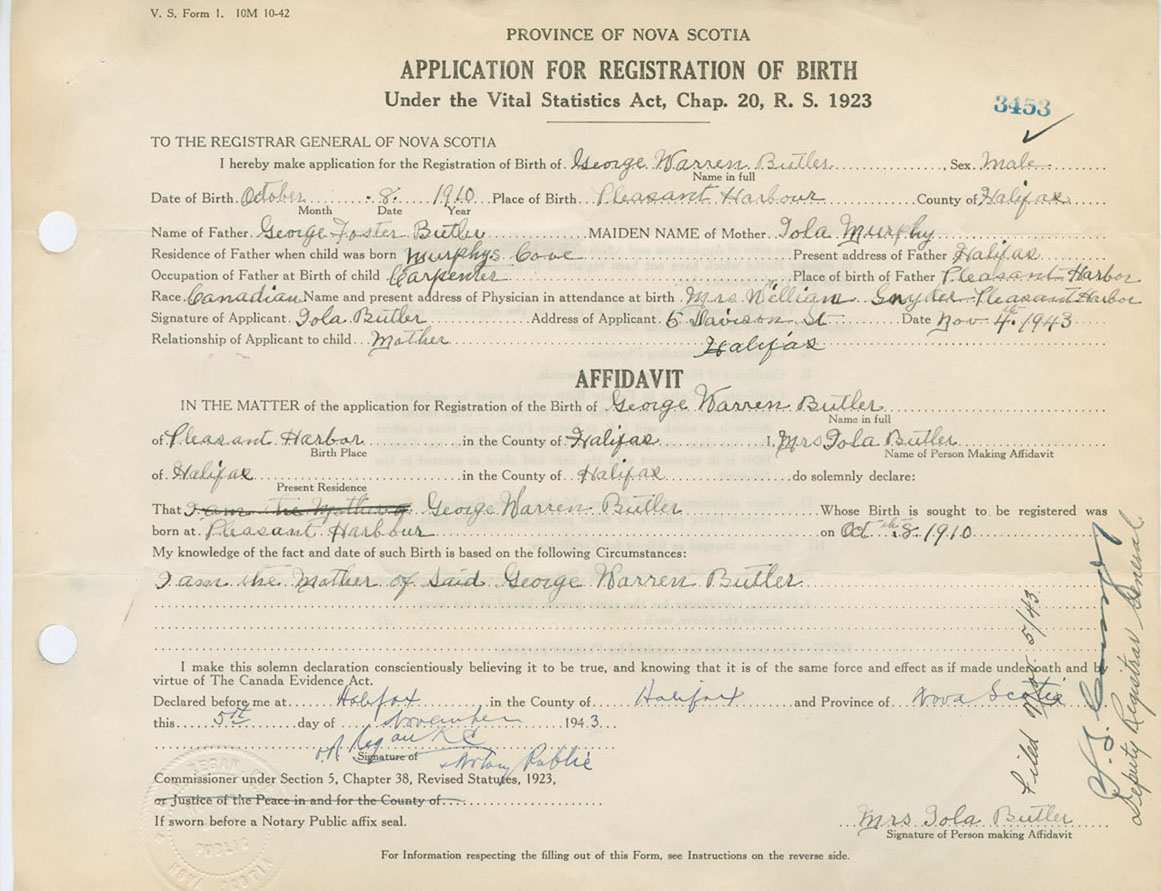 V. S. Form 1. 10M 10-42
PROVINCE OF NOVA SCOTIA
APPLICATION FOR REGISTRATION OF BIRTH
Under the Vital Statistics Act, Chap. 20, R. S. 1923
3453
TO THE REGISTRAR GENERAL OF NOVA SCOTIA
I hereby make application for the Registration of Birth of George Warren Butler, Sex Male
Name in full
Date of Birth October 8 1910 Place of Birth Pleasant Harbour County of Halifax
Month Date Year
Name of Father George Foster Butler MAIDEN NAME of Mother Iola Murphy
Residence of Father when child was born Murphys Cove Present address of Father Halifax
Occupation of Father at Birth of child Carpenter Place of birth of Father Pleasant Harbor
Race Canadian Name and present address of Physician in attendance at birth Mrs William Snyder Pleasant Harbor
Signature of Applicant Iola Butler Address of Applicant 5 Davison St Date Nov 4th 1943
Relationship of Applicant to child Mother Halifax
AFFIDAVIT
IN THE MATTER of the application for Registration of the Birth of George Warren Butler
Name in full
of Pleasant Harbor in the County of Halifax I, Mrs Iola Butler
Birth Place Name of Person Making Affidavit
of Halifax in the County of Halifax do solemnly declare:
Present Residence
That I am the George Warren Butler Whose Birth is sought to be registered was
born at Pleasant Harbour on Oct 8th 1910
My knowledge of the fact and date of such Birth is based on the following Circumstances:
I am the Mother of Said George Warren Butler
I make this solemn declaration conscientiously believing it to be true, and knowing that it is of the same force and effect as if made under oath and by
virtue of The Canada Evidence Act.
Declared before me at Halifax in the County of Halifax and Province of Nova Scotia
this 5th day of November 1943
Regan K C
Signature of Notary Public
Commissioner under Section 5, Chapter 38, Revised Statutes, 1923,
or Justice of the Peace in and for the County of
If sworn before a Notary Public affix seal.
Mrs Iola Butler
Signature of Person making Affidavit
For Information respecting the filling out of this Form, see Instructions on the reverse side.
Filed Nov 5/43
Deputy Registrar General
REGAN
PUBLIC
NOVA SCOTIA